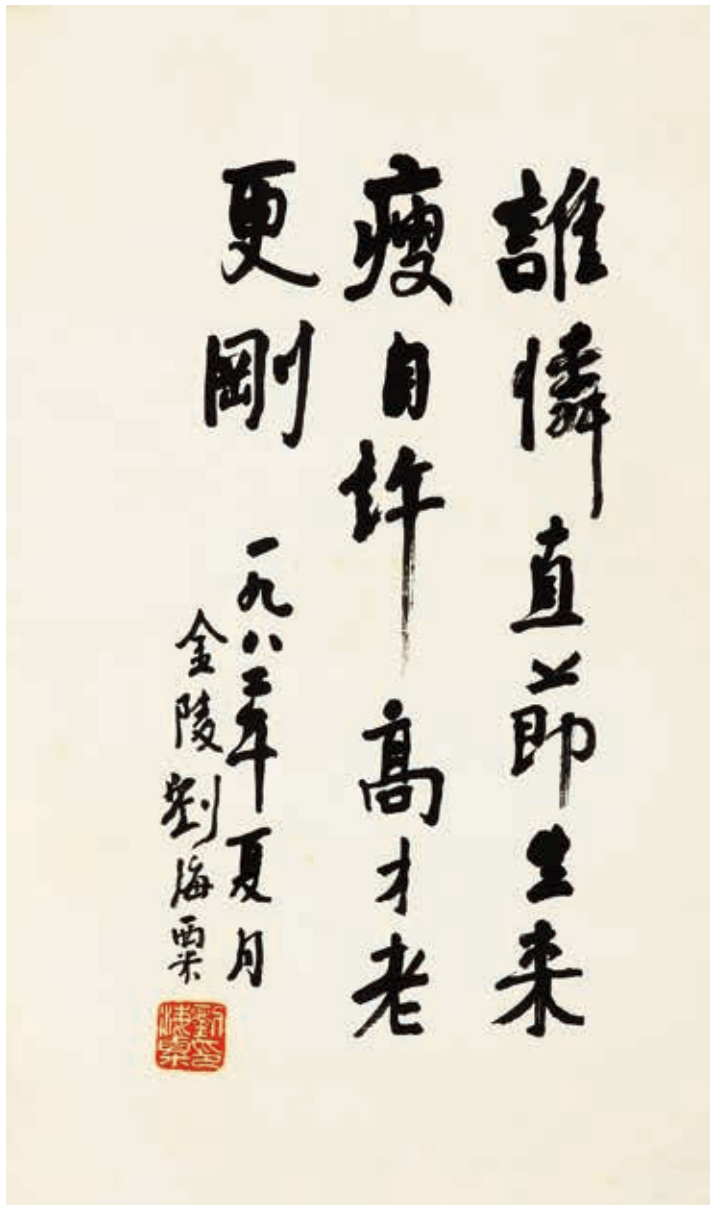 誰憐直節生来
瘦自許高才老
更剛
一九八二年夏月
金陵劉海粟
劉海粟印